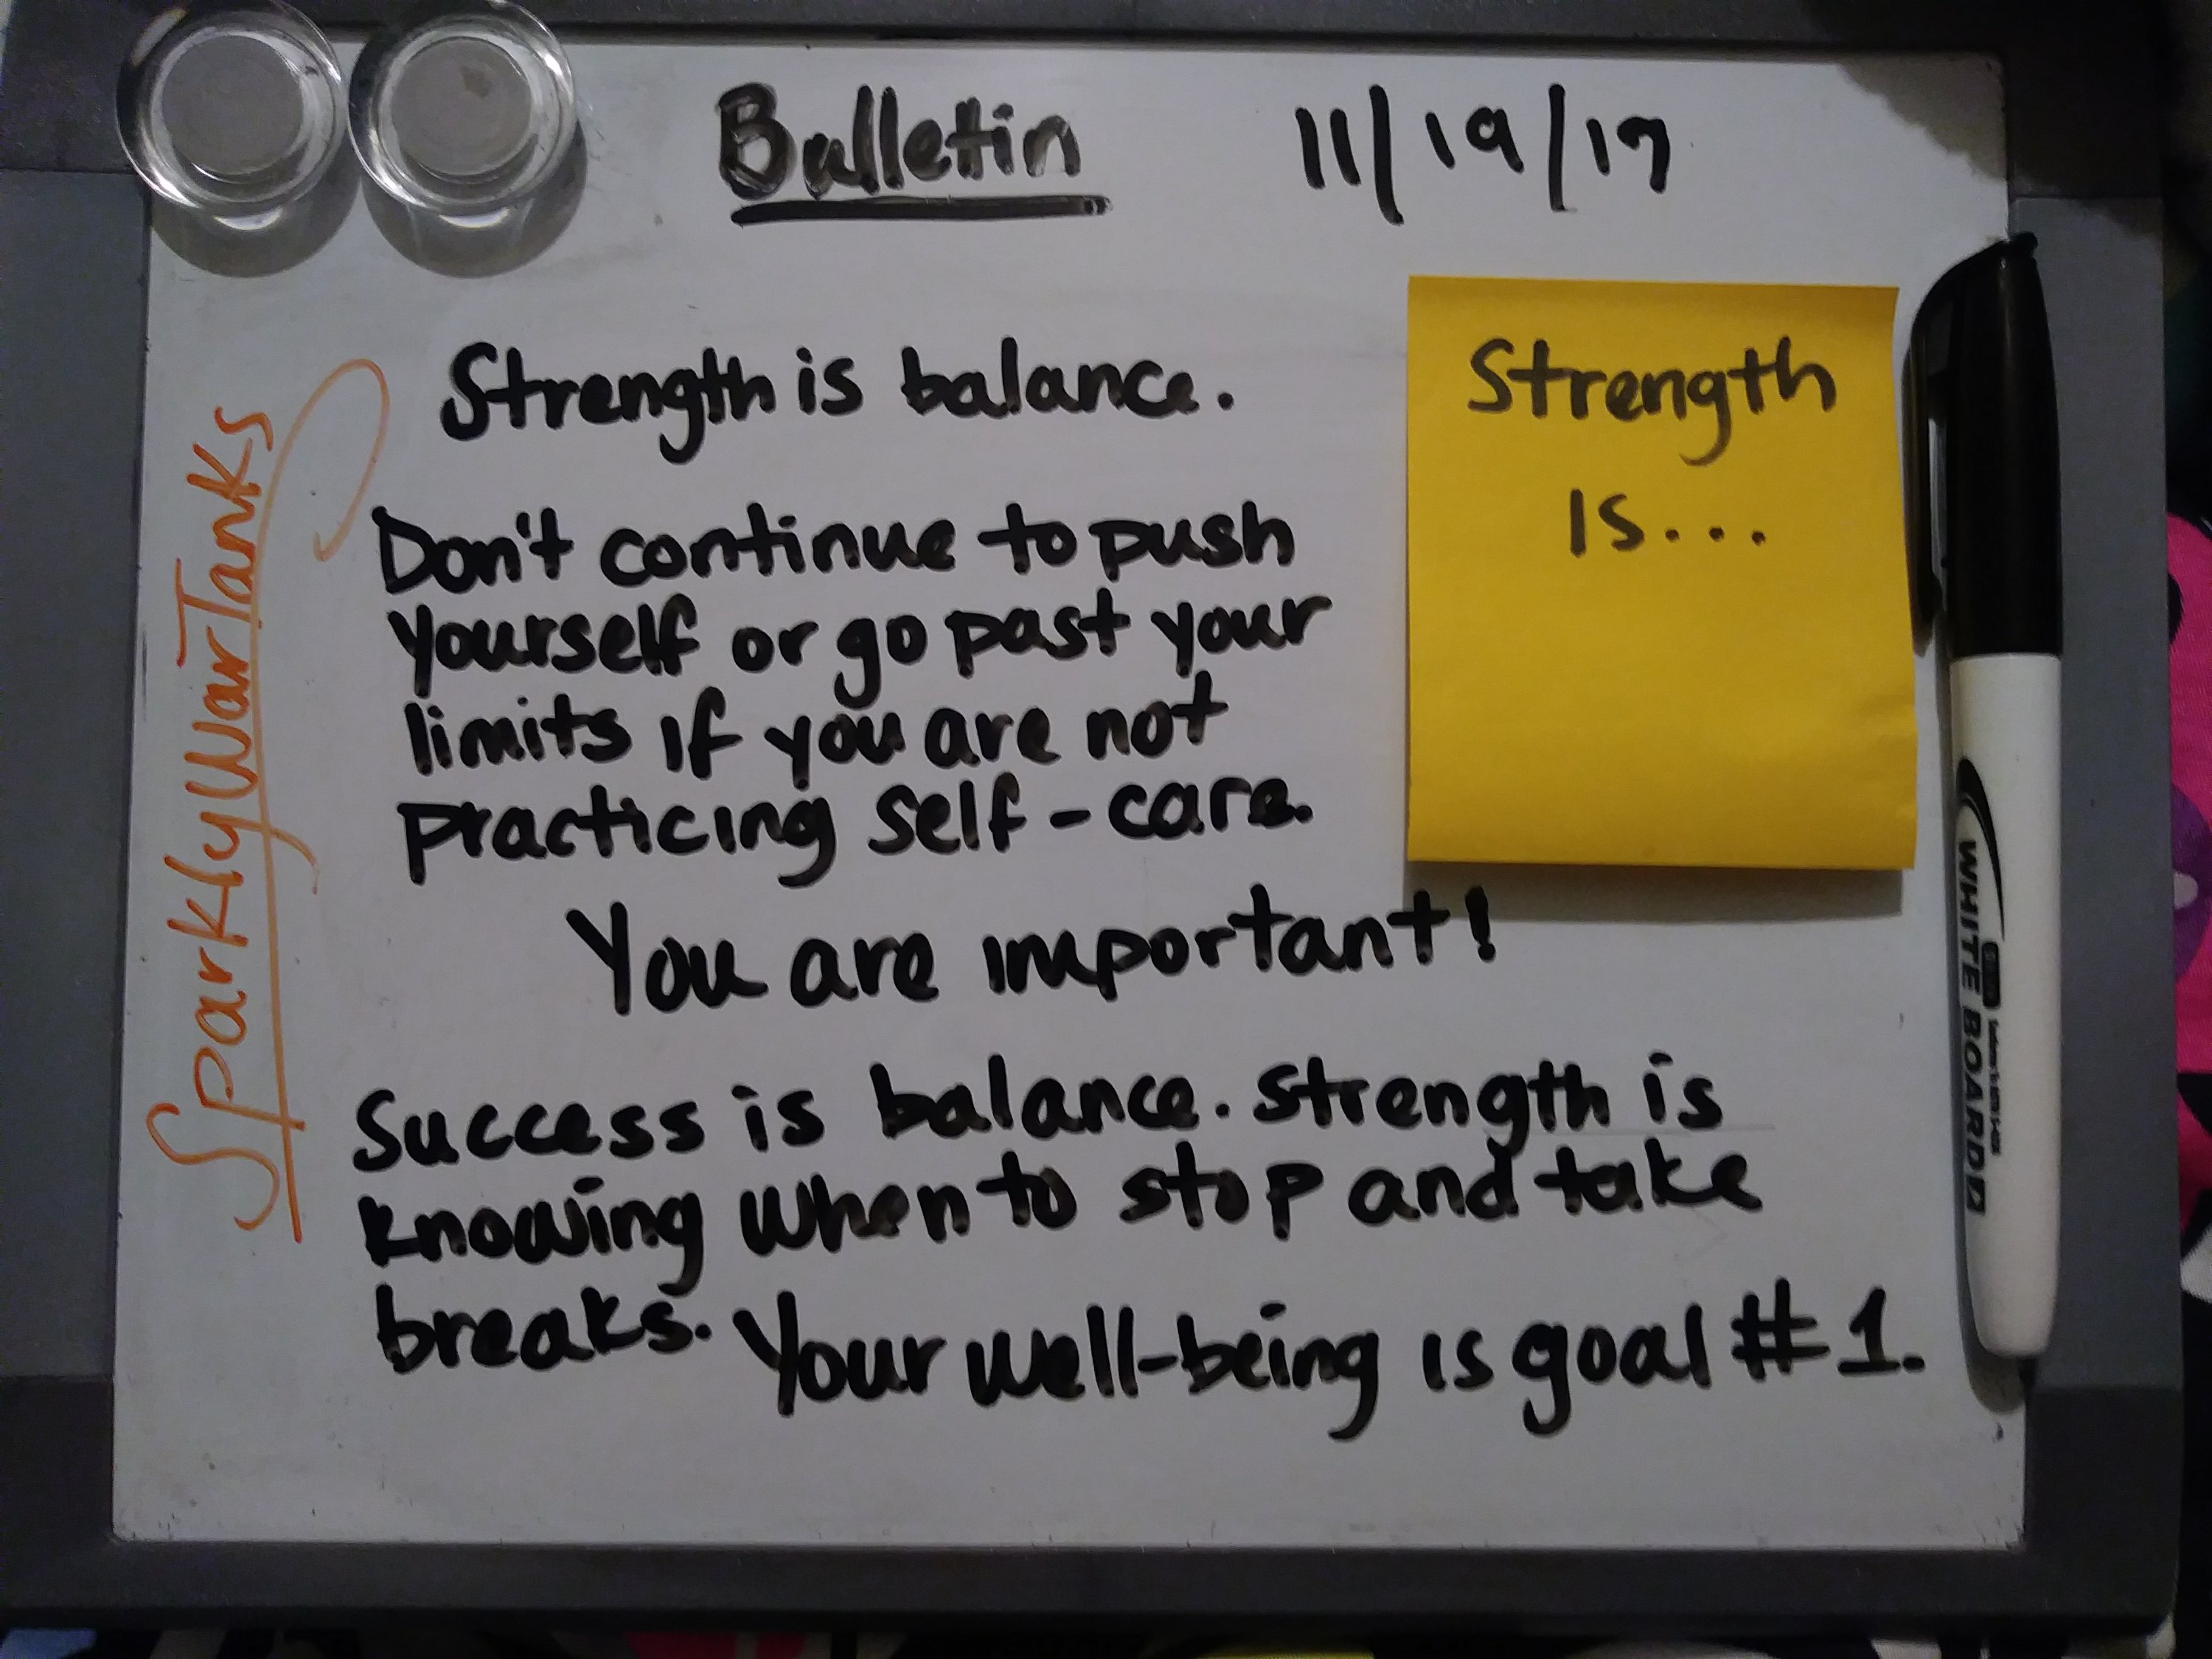 Bulletin 11/19/17
Strength is balance.
Strength
Is...
Don't continue to push
yourself or go past your
limits if you are not
practicing self-care.
You are important!
Success is balance. Strength is
knowing when to stop and take
breaks. Your well-being is goal #1.
SparklyWarTanks
WHITE BOARD